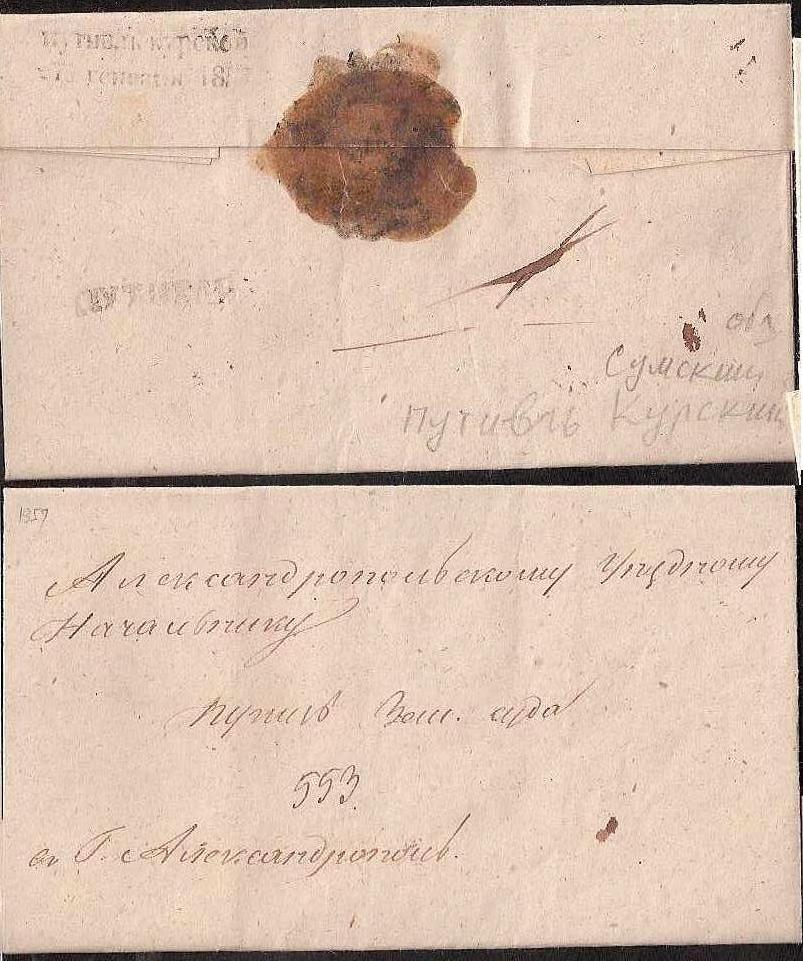 Путивль Курской
генваря 18
ПУТИВЛЬ
обл
Сумский
Путивль Курский
1857
Александропольскому Уѣздному
Начальнику
Путивль Зем. суда
553.
въ Г. Александрополь.